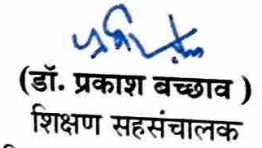 (डॉ. प्रकाश बच्छाव )
शिक्षण सहसंचालक